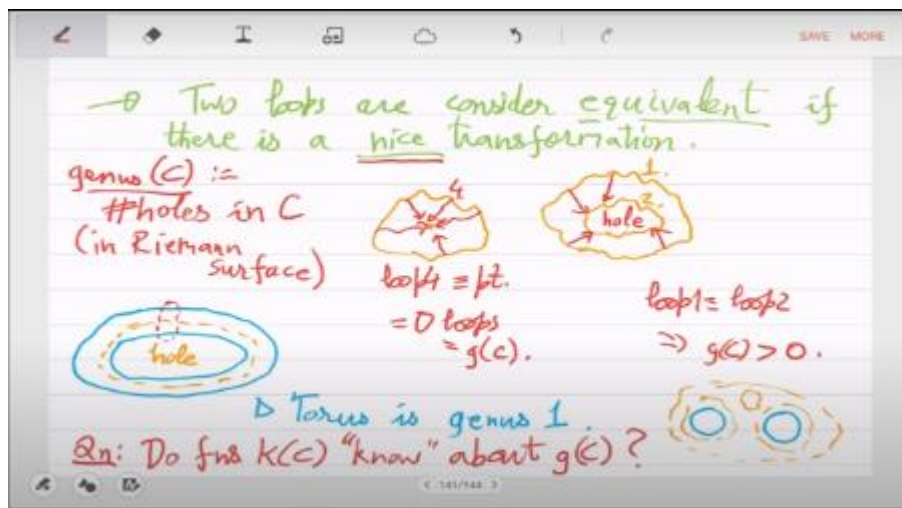 SAVE MORE
Two loops are consider equivalent if
there is a nice transformation.
genus(C) :=
#holes in C
(in Riemann
surface)
4
1.
2.
hole
loop4 ≡ pt.
= 0 loops
= g(C).
loop1 ≡ loop2
⇒ g(C) > 0.
hole
▷ Torus is genus 1.
Qn: Do fns K(C) "know" about g(C)?
< 141/144 >